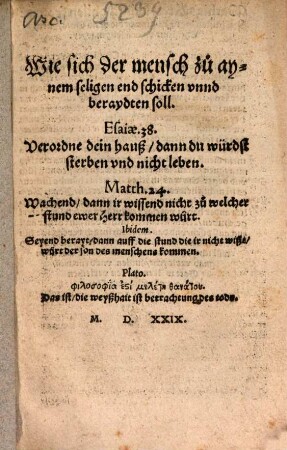 Asc. 5239
Wie sich der mensch zů ay⸗
nem seligen end schicken vnnd
beraydten soll.
Esaiæ. 38.
Verordne dein hauß / dann du würdst
sterben vnd nicht leben.
Matth. 24.
Wachend / dann ir wissend nicht zů welcher
stund ewer Herr kommen würt.
Ibidem.
Seyend berayt / dann auff die stund die ir nicht wisse /
würt der son des menschens kommen.
Plato.
φιλοσοφία ἐςὶ μελέτη θανάτου.
Das ist / die weyßhait ist betrachtung des tods.
M. D. XXIX.